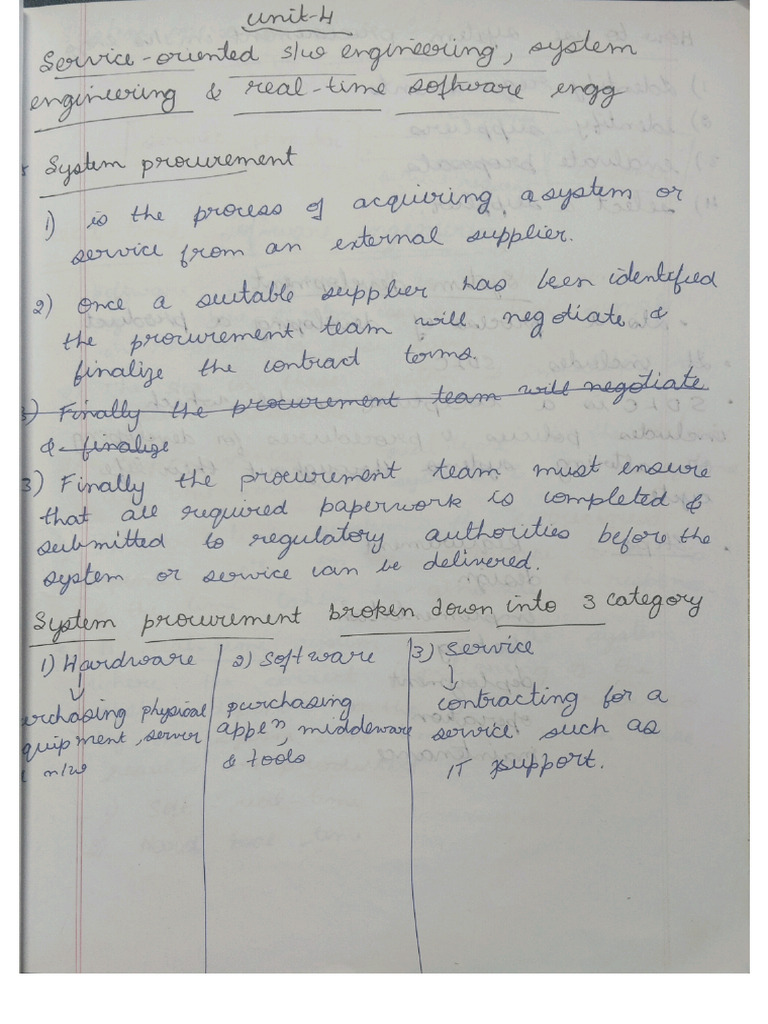 Unit-4
Service-oriented s/w engineering, system
engineering & real-time software engg
System procurement
1) is the process of acquiring a system or
service from an external supplier.
2) Once a suitable supplier has been identified
the procurement team will negotiate &
finalize the contract terms.
3) Finally the procurement team will negotiate
& finalize
3) Finally the procurement team must ensure
that all required paperwork is completed &
submitted to regulatory authorities before the
system or service can be delivered.
System procurement broken down into 3 category
1) Hardware 2) Software 3) Service
urchasing physical purchasing contracting for a
quipment, server appln, middleware service such as
n/w & tools IT support.